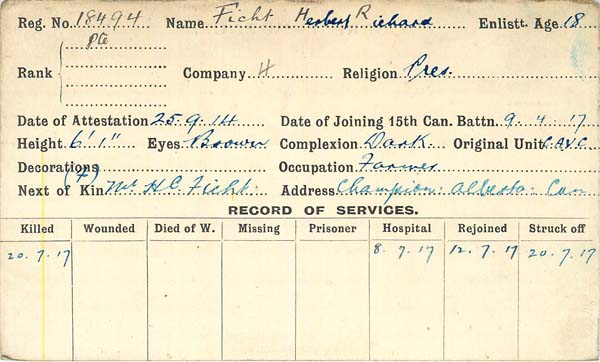 Reg. No. 18494 Name Ficht Herbert Richard Enlistt. Age 18
Rank Pte Company H Religion Pres.
Date of Attestation 25.9.14 Date of Joining 15th Can. Battn. 9.4.17
Height 6' 1" Eyes Brown Complexion Dark Original Unit C.A.V.C.
Decorations Occupation Farmer
Next of Kin (F) Mr H.C. Ficht. Address Champion. Alberta. Can
RECORD OF SERVICES.
Killed Wounded Died of W. Missing Prisoner Hospital Rejoined Struck off
20.7.17 8.7.17 12.7.17 20.7.17